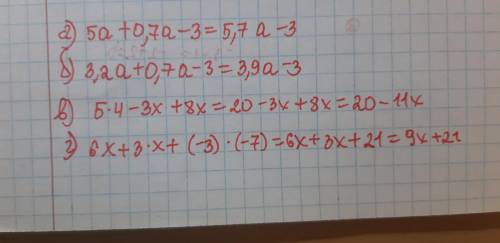 а) 5a+0,7a-3=5,7a-3
б) 3,2a+0,7a-3=3,9a-3
в) 5·4-3x+8x=20-3x+8x=20-11x
г) 6x+3·x+(-3)·(-7)=6x+3x+21=9x+21